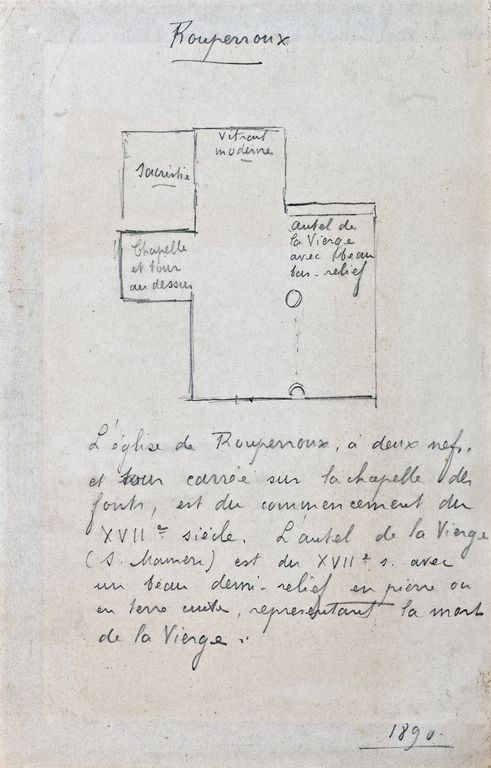 Rouperroux
Vitrail
moderne
Sacristie
Autel de
la Vierge
avec beau
bas-relief
Chapelle
et tour
au dessus
L'église de Rouperroux, à deux nefs,
et tour carrée sur la chapelle des
fonts, est du commencement du
XVIIe siècle. L'autel de la Vierge
(S. Mamers) est du XVIIe s. avec
un beau demi-relief en pierre ou
en terre cuite, représentant la mort
de la Vierge.
1890.